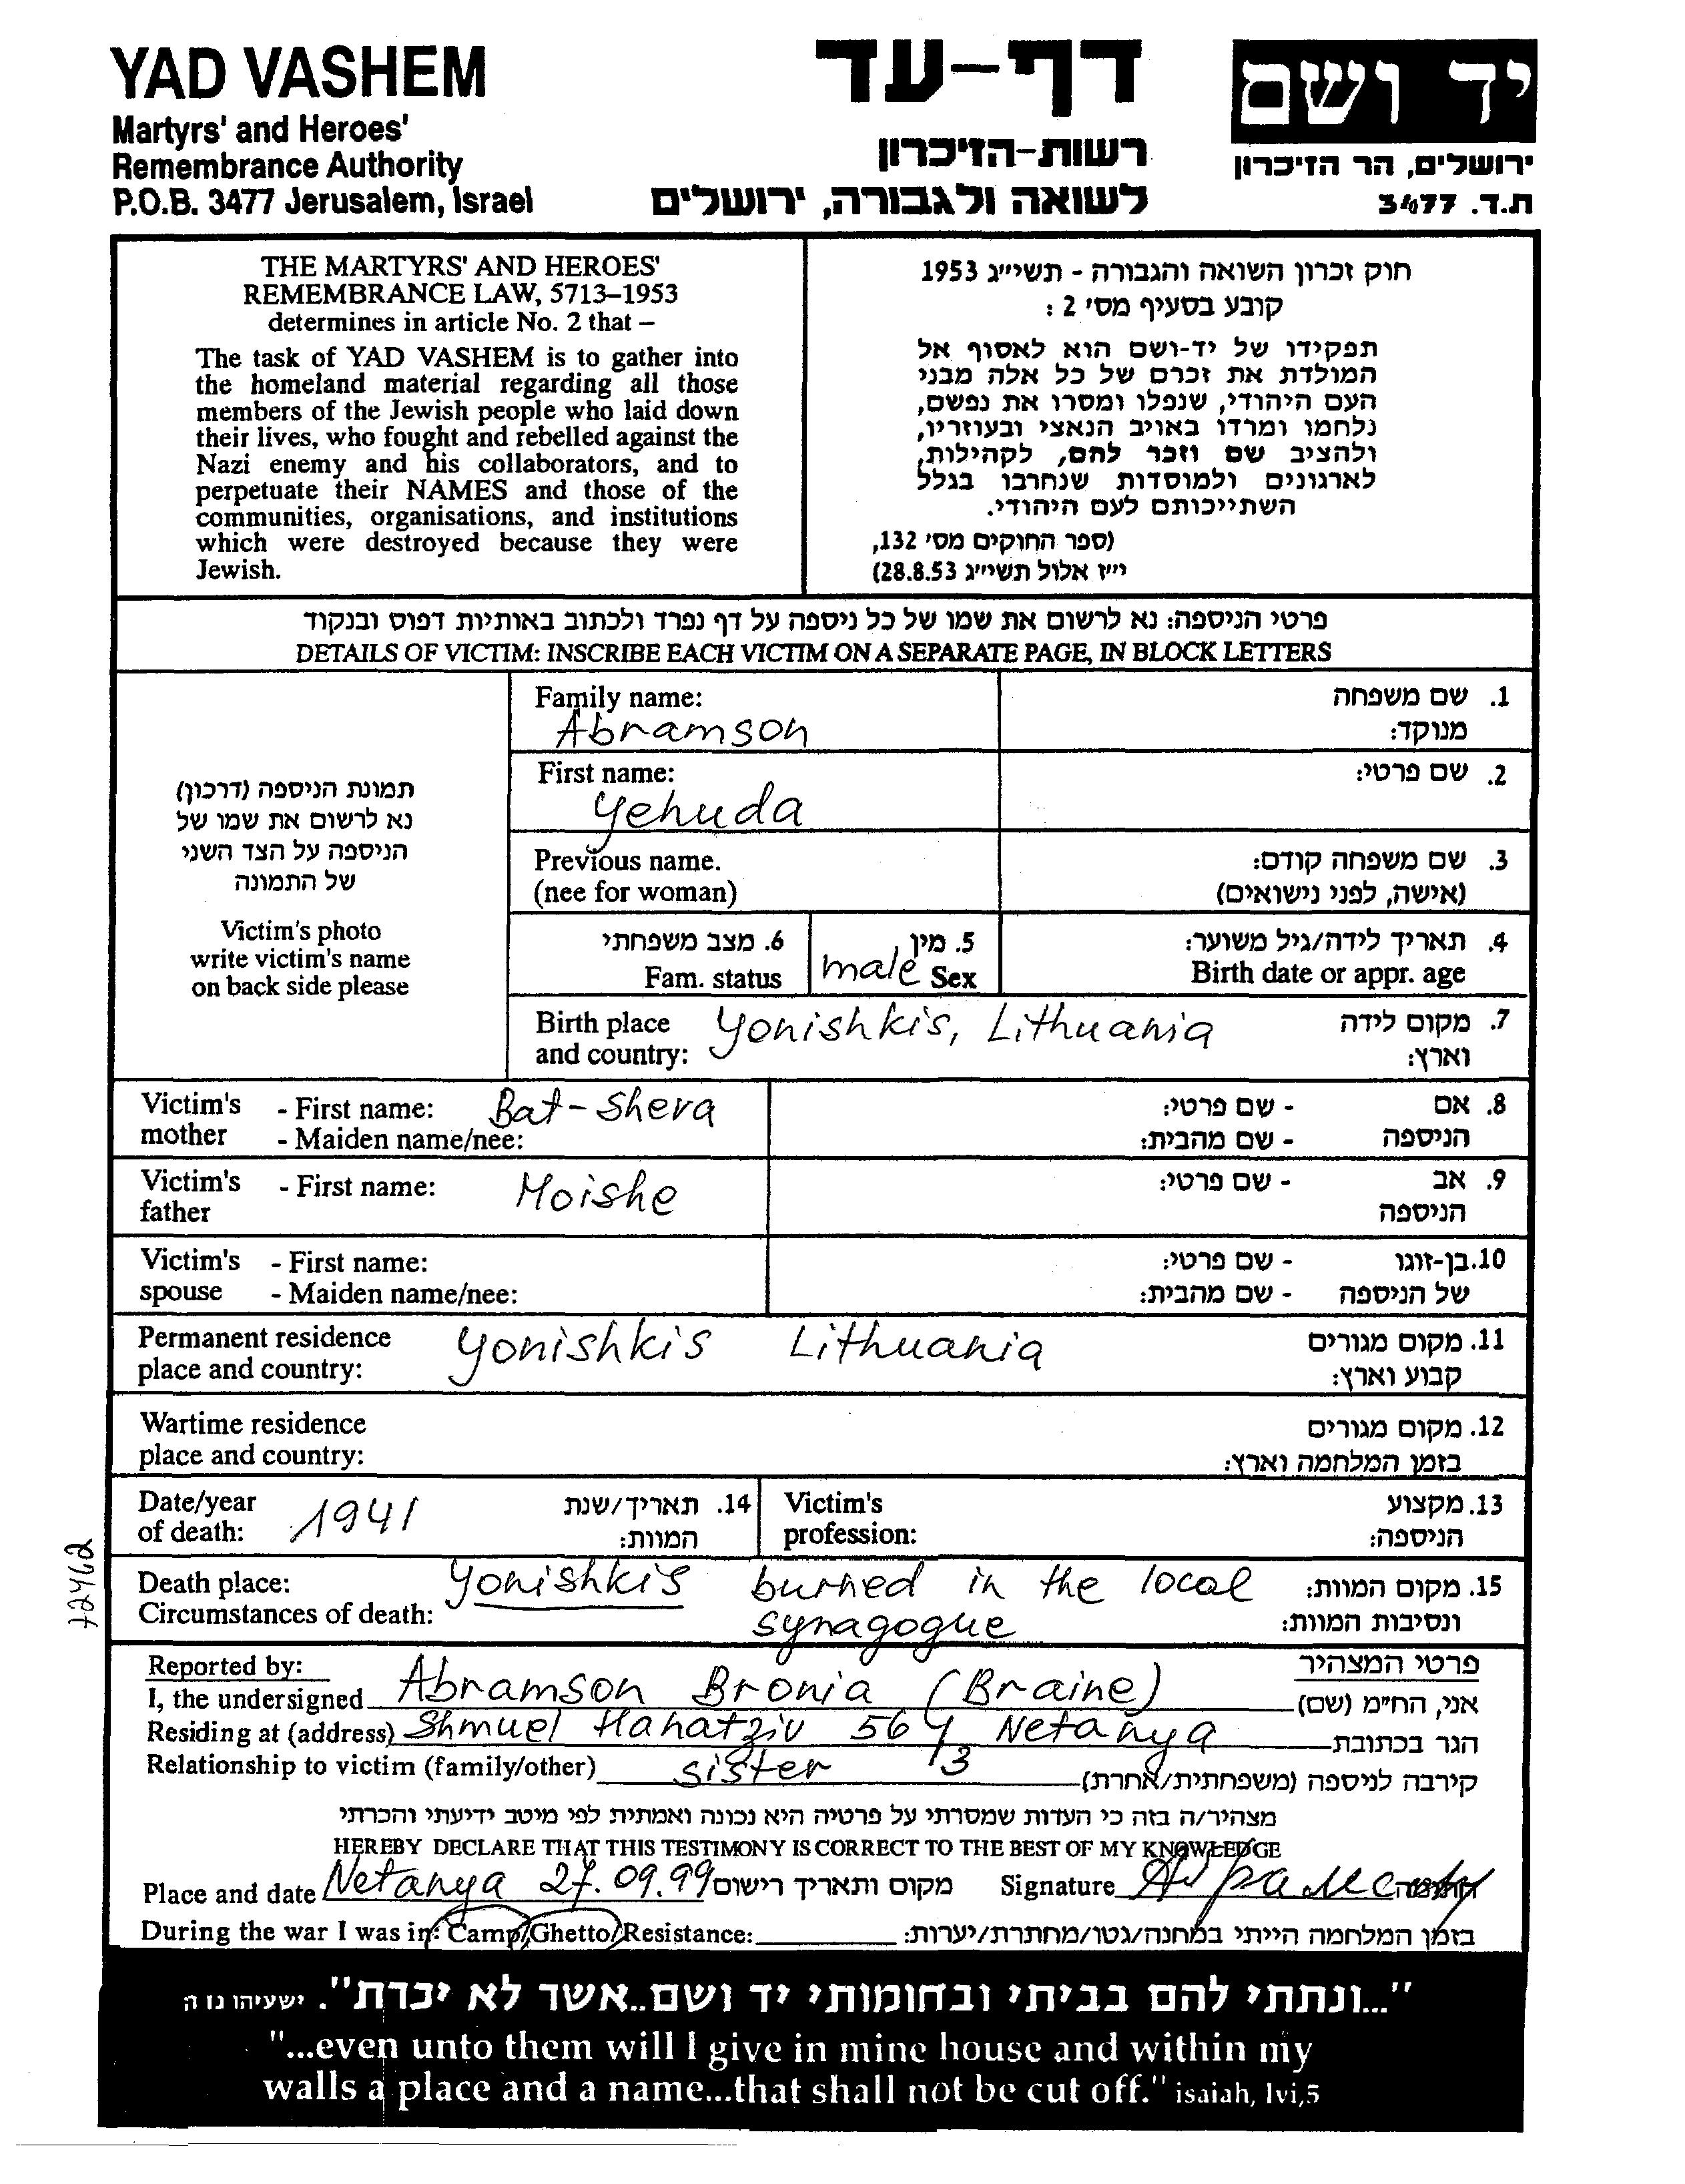 YAD VASHEM
Martyrs' and Heroes'
Remembrance Authority
P.O.B. 3477 Jerusalem, Israel
דף-עד
רשות-הזיכרון
לשואה ולגבורה, ירושלים
יד ושם
ירושלים, הר הזיכרון
ת.ד. 3477
THE MARTYRS' AND HEROES'
REMEMBRANCE LAW, 5713–1953
determines in article No. 2 that –
The task of YAD VASHEM is to gather into
the homeland material regarding all those
members of the Jewish people who laid down
their lives, who fought and rebelled against the
Nazi enemy and his collaborators, and to
perpetuate their NAMES and those of the
communities, organisations, and institutions
which were destroyed because they were
Jewish.
חוק זכרון השואה והגבורה - תשי״ג 1953
קובע בסעיף מס' 2 :
תפקידו של יד-ושם הוא לאסוף אל
המולדת את זכרם של כל אלה מבני
העם היהודי, שנפלו ומסרו את נפשם,
נלחמו ומרדו באויב הנאצי ובעוזריו,
ולהציב שם וזכר להם, לקהילות,
לארגונים ולמוסדות שנחרבו בגלל
השתייכותם לעם היהודי.
(ספר החוקים מס' 132,
י״ז אלול תשי״ג 28.8.53)
פרטי הניספה: נא לרשום את שמו של כל ניספה על דף נפרד ולכתוב באותיות דפוס ובנקוד
DETAILS OF VICTIM: INSCRIBE EACH VICTIM ON A SEPARATE PAGE, IN BLOCK LETTERS
תמונת הניספה (דרכון)
נא לרשום את שמו של
הניספה על הצד השני
של התמונה
Victim's photo
write victim's name
on back side please
Family name: 1. שם משפחה
Abramson מנוקד:
First name: 2. שם פרטי:
Yehuda
Previous name. 3. שם משפחה קודם:
(nee for woman) (אישה, לפני נישואים)
6. מצב משפחתי 5. מין 4. תאריך לידה/גיל משוער:
Fam. status male Sex Birth date or appr. age
Birth place Yonishkis, Lithuania 7. מקום לידה
and country: וארץ:
Victim's - First name: Bat-Sheva - שם פרטי: 8. אם
mother - Maiden name/nee: - שם מהבית: הניספה
Victim's - First name: Moishe - שם פרטי: 9. אב
father הניספה
Victim's - First name: - שם פרטי: 10. בן-זוגו
spouse - Maiden name/nee: - שם מהבית: של הניספה
Permanent residence Yonishkis Lithuania 11. מקום מגורים
place and country: קבוע וארץ:
Wartime residence 12. מקום מגורים
place and country: בזמן המלחמה וארץ:
Date/year 1941 14. תאריך/שנת Victim's 13. מקצוע
of death: המוות: profession: הניספה:
72462
Death place: Yonishkis burned in the local 15. מקום המוות:
Circumstances of death: synagogue ונסיבות המוות:
Reported by: פרטי המצהיר
I, the undersigned Abramson Bronia (Braine) אני, הח״מ (שם)
Residing at (address) Shmuel Hanatziv 56/3 Netanya הגר בכתובת
Relationship to victim (family/other) sister קירבה לניספה (משפחתית/אחרת)
מצהיר/ה בזה כי העדות שמסרתי על פרטיה היא נכונה ואמתית לפי מיטב ידיעתי והכרתי
HEREBY DECLARE THAT THIS TESTIMONY IS CORRECT TO THE BEST OF MY KNOWLEDGE
Place and date Netanya 27.09.99 מקום ותאריך רישום Signature
During the war I was in: Camp/Ghetto/Resistance: בזמן המלחמה הייתי במחנה/גטו/מחתרת/יערות:
"...ונתתי להם בביתי ובחומותי יד ושם..אשר לא יכרת". ישעיהו נו ה
"...even unto them will I give in mine house and within my
walls a place and a name...that shall not be cut off." isaiah, lvi,5